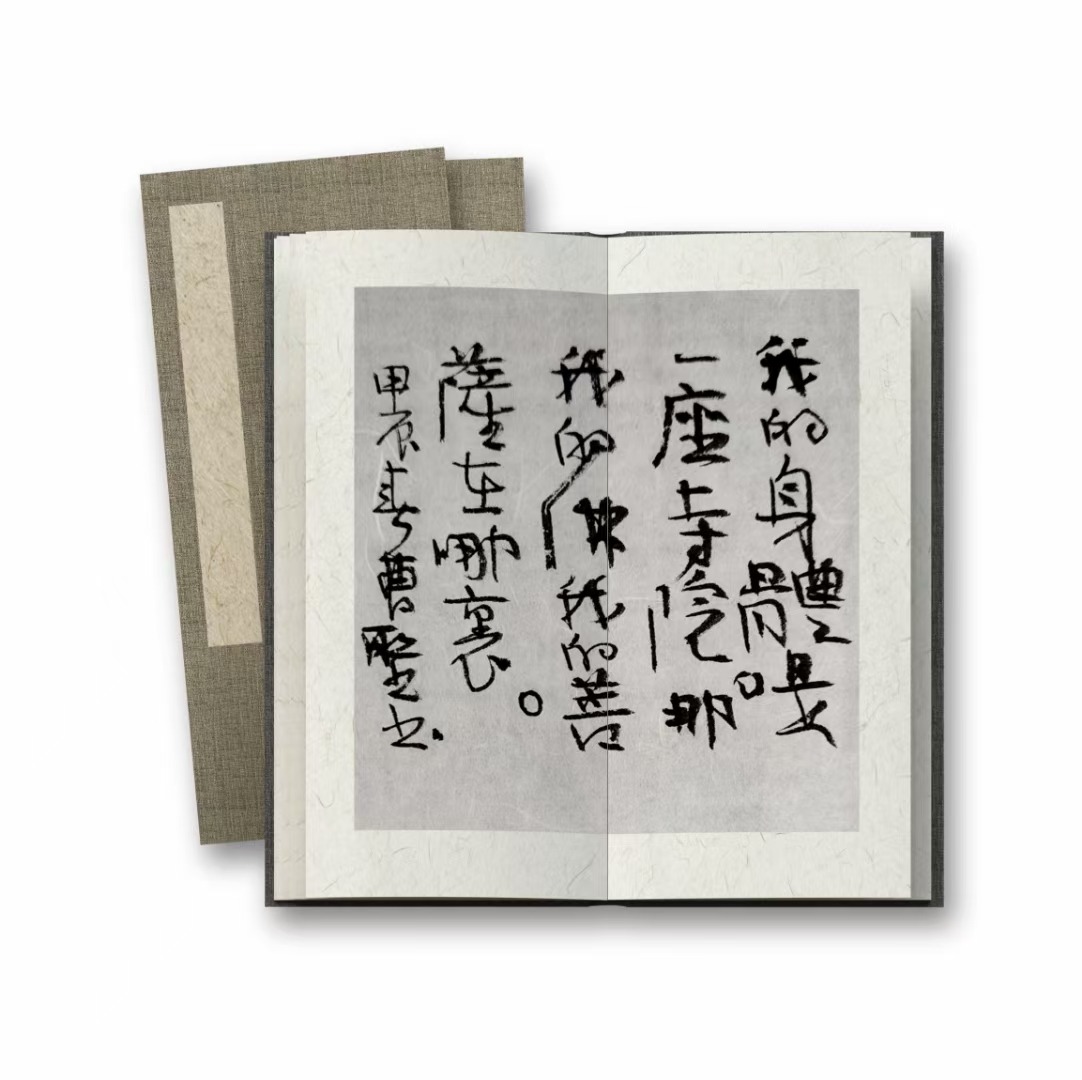 我的身體是
一座寺院。那
我的佛我的菩
薩在哪裏。
甲辰春曹书